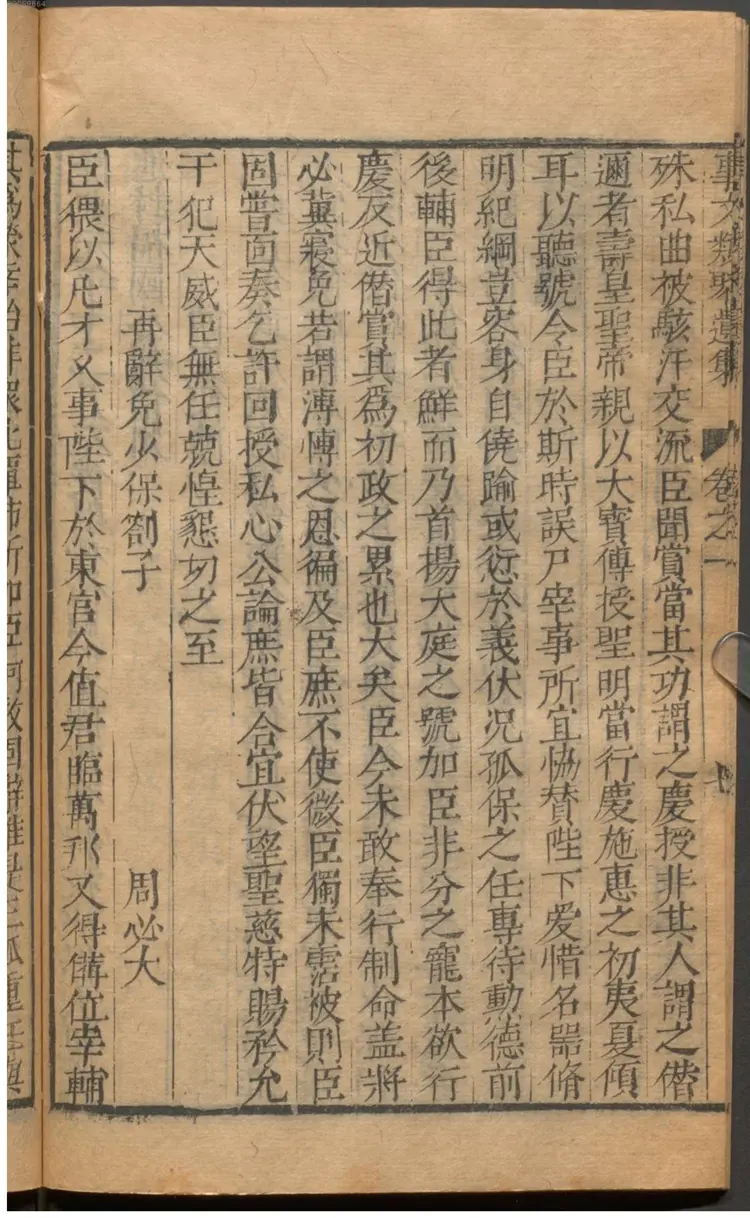 事文類聚遺集 卷之一
殊私曲被駭汗交流臣聞賞當其功謂之慶授非其人謂之僭
邇者壽皇聖帝親以大寶傳授聖明當行慶施惠之初夷夏傾
耳以聽號令臣於斯時誤尸宰事所宜恊賛陛下愛惜名噐脩
明紀綱豈容身自僥踰或愆於義伏况孤保之任專待勳德前
後輔臣得此者鮮而乃首揚大庭之號加臣非分之寵本欲行
慶反近僭賞其爲初政之累也大矣臣今未敢奉行制命盖將
必冀寢免若謂溥慱之恩徧及臣庶不使微臣獨未霑被則臣
固嘗面奏乞許回授私心公論庶皆合宜伏望聖慈特賜矜允
干犯天威臣無任兢惶懇切之至
再辭免少保劄子 周必大
臣猥以凡才乂事陛下於東宮今值君臨萬邦又得備位宰輔